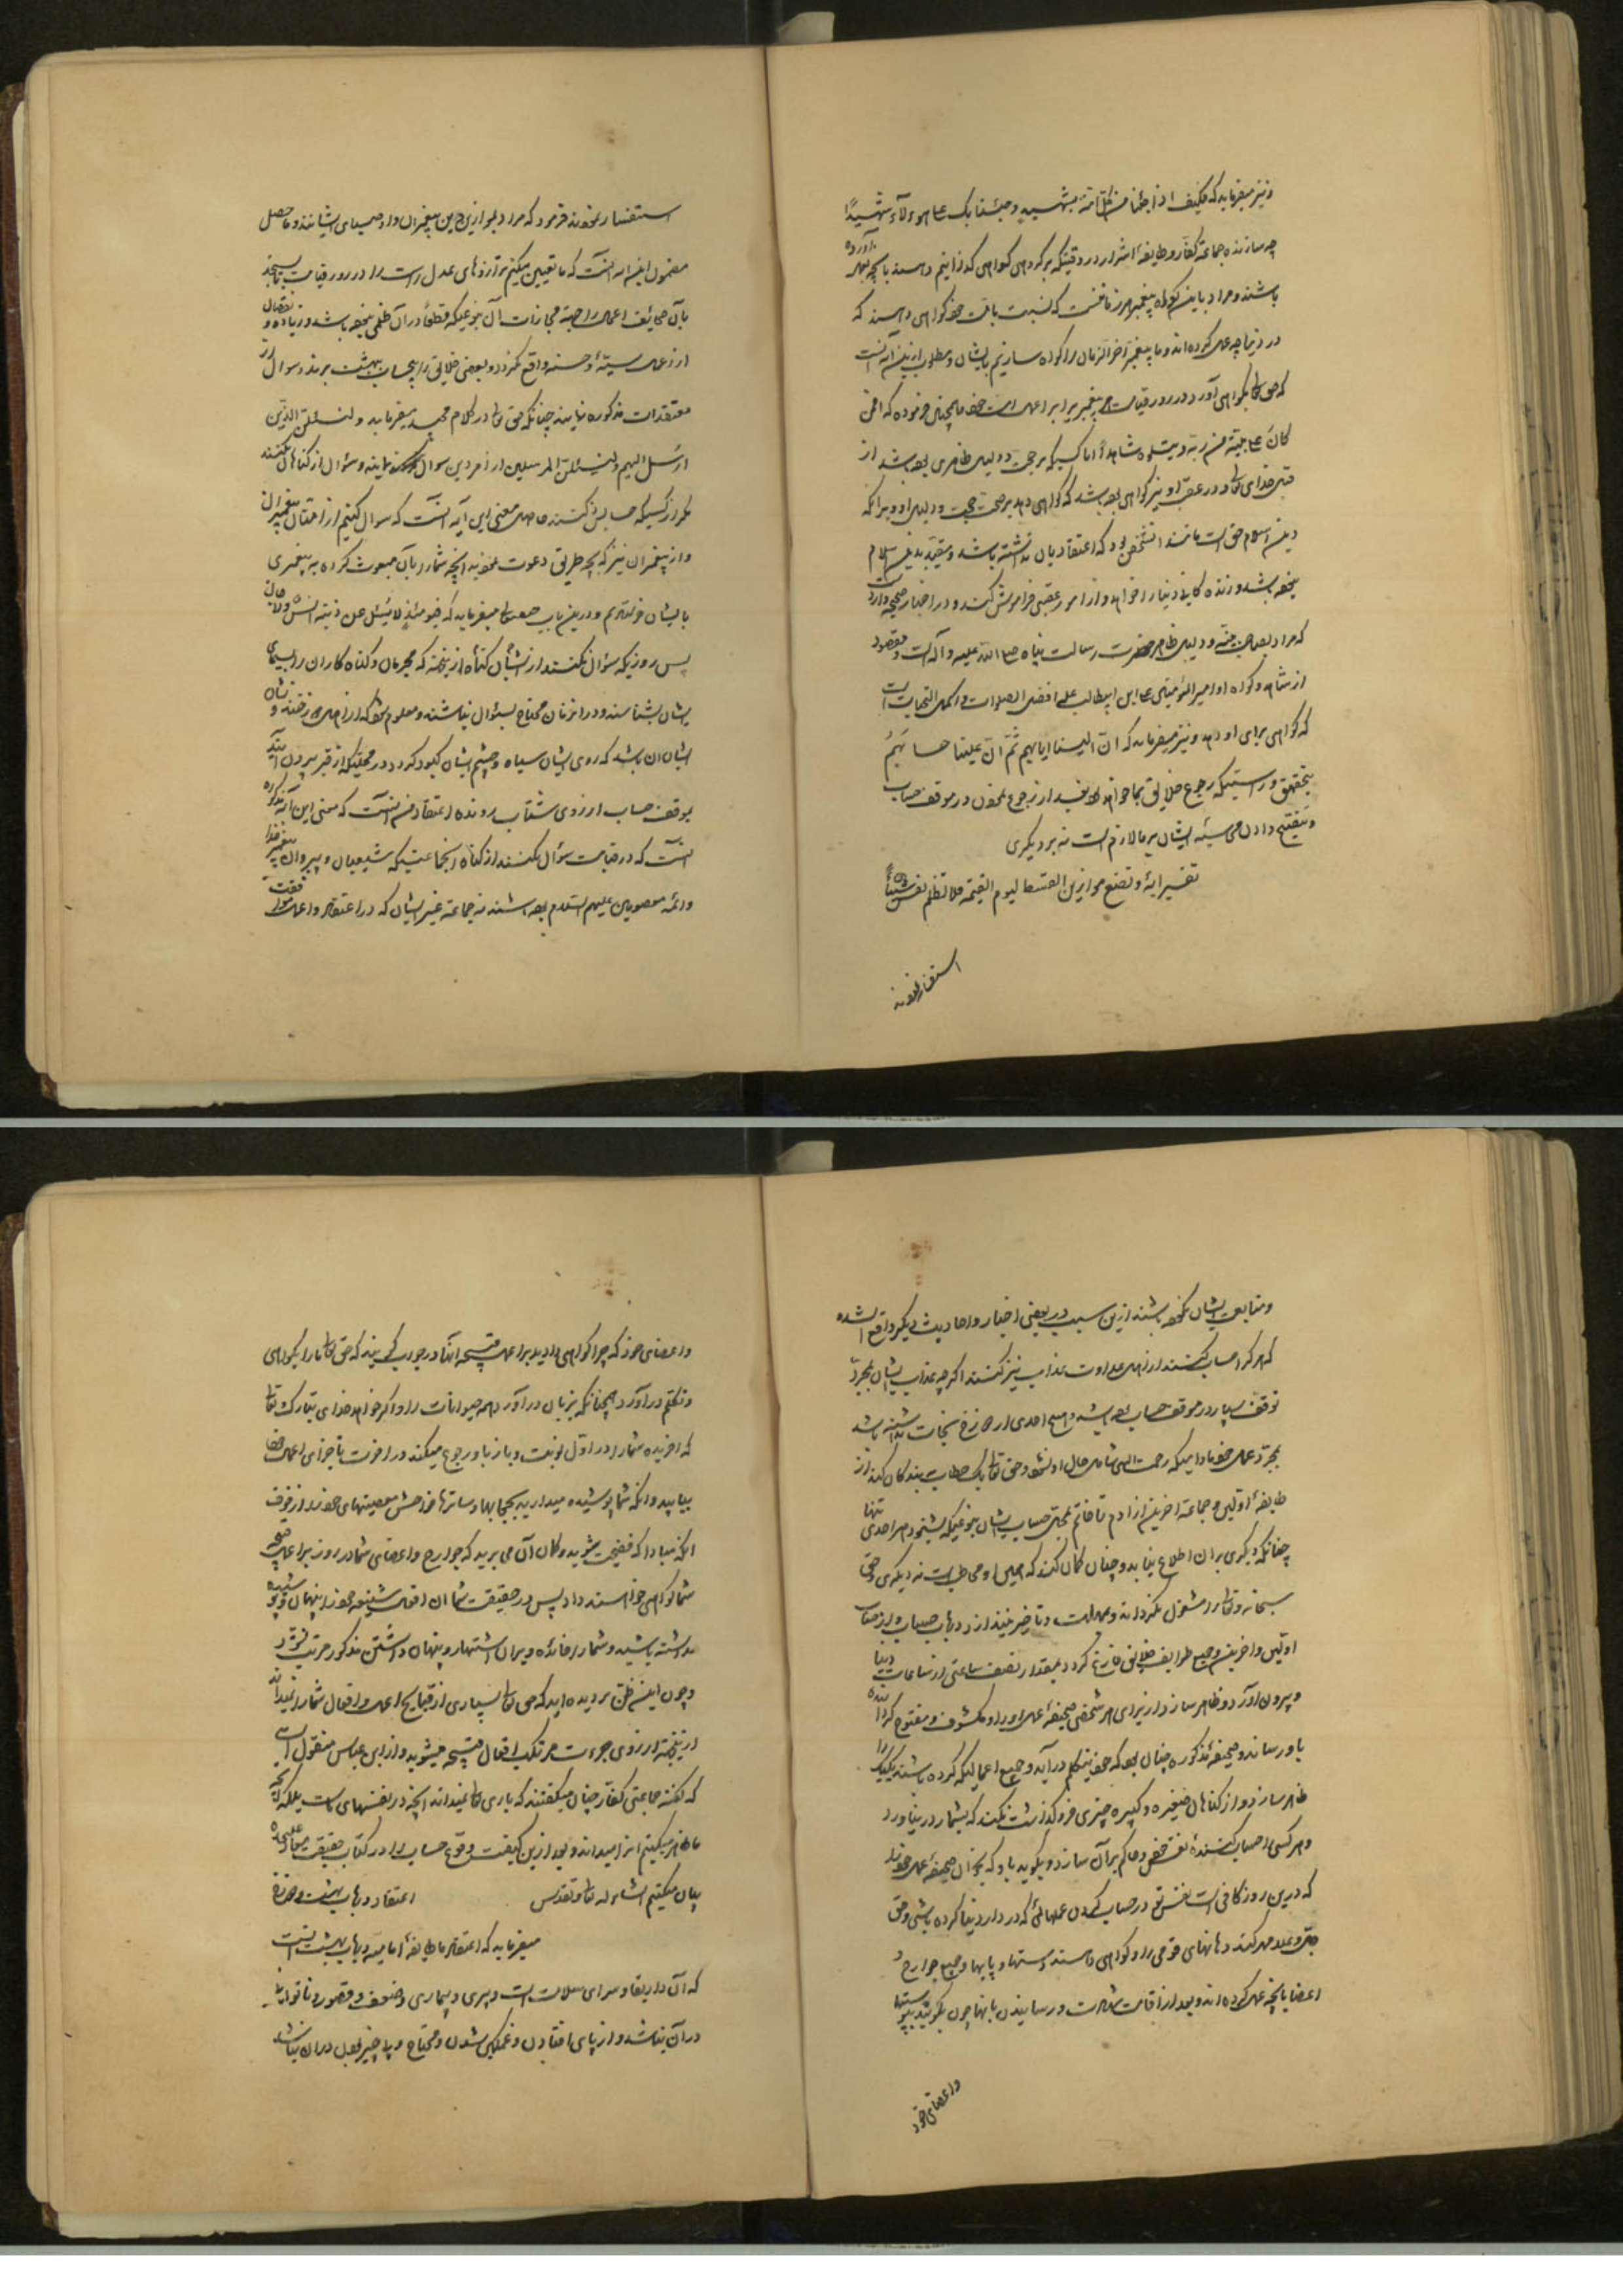 و نیز میفرماید که فکیف اذا جئنا من کل امة بشهید و جئنا بک علی هؤلاء شهیدا
چه سازند جماعه کفار و طایفه اشرار در وقتیکه بر هر گروهی گواهی گذرانیم و
باشند و مراد باین گواه پیغمبر هر زمانست که نسبت بامت خود گواهی دهند که
در دنیا چه عمل کرده‌اند و ما پیغمبر آخر الزمان را گواه سازیم بایشان و مطلوب ازین آنست
که حق تعالی گواهی آورد در روز قیامت هر پیغمبر برا بر اعمال امت خود همچنین فرموده که افمن
کان علی بینة من ربه و یتلوه شاهد ایا کسیکه بر حجت و دلیل ظاهری بوده باشد از
قبل خدای تعالی و در عقب او نیز گواهی بوده باشد که گواهی دهد بر صحت حجت و دلیل او و برآنکه
دین اسلام حق است مانند آنشخص بود که اعتقاد بان نداشته باشد و مقید بدین اسلام
نبوده باشد و زندگانی دنیا را خواهد و از امور عقبی فراموش کند و در اخبار صحیحه وارد است
که مراد بصاحب بینه و دلیل ظاهر حضرت رسالت پناه صلی الله علیه و آله است و مقصود
از شاهد و گواه او امیر المؤمنین علی ابن ابیطالب علیه افضل الصلوات و اکمل التحیات است
که گواهی برای او دهد و نیز میفرماید که ان الینا ایابهم ثم ان علینا حسابهم
بتحقیق و راستیکه رجوع خلایق بما خواهد بود بعد از رجوع نمودن در موقف حساب
و تنقیح دادن محاسبه ایشان بر ما لازم است نه بر دیگری
تفسیر آیه و نضع موازین القسط لیوم القیمة فلا تظلم نفس شیئا
استفسار نمودند
استفسار نمودند فرمود که مراد بموازین درین پیغمبران و اوصیای ایشانند و حاصل
مضمون این آیه آنست که ما تعیین میکنیم ترازوهای عدل راست را در روز قیامت تا بسنجند
بآن صحائف اعمال را جهة مجازات آن بنوعیکه قطعا در آن ظلمی نبوده باشد و زیاده و نقصان
از عمل سیئه و حسنه واقع نگردد و بعضی خلایق را بیحساب ببهشت برند و سوال از
معتقدات مذکوره نمایند چنانکه حق تعالی در کلام مجید میفرماید و لنسئلن الذین
ارسل الیهم و لنسئلن المرسلین از امر دین سوال نمایند و سؤال از گناهان نکنند
مگر از کسیکه حسابش کنند حاصل معنی این آیه آنست که سوال کنیم از امتان پیغمبران
و از پیغمبران نیز که بچه طریق دعوت نمودید آنچه شما را بآن مبعوث کرده به پیغمبری
بایشان فرستادیم و درین باب حق تعالی میفرماید که فیومئذ لا یسئل عن ذنبه انس و لا جان
پس روزیکه سؤال نکنند از نشان گناه از جهت که مجرمان و گناه کاران را بسیمای
یشان بشناسند و در انزمان محتاج بسئوال نباشند و معلوم بوده که از نشان
ایشان ان باشد که روی ایشان سیاه و چشم ایشان کبود گردد در محلیکه از قبر بیرون آیند
بموقف حساب از روی شتاب روند و اعتقاد من آنست که معنی این آیه مذکوره
آنست که در قیامت سؤال نکنند از گناه آنجماعتیکه شیعیان و پیروان پیغمبر خدا
و ائمه معصومین علیهم السلام بوده باشند نه جماعه غیر ایشان که در اعتقاد و اعمال موافقت
و متابعت ایشان نکرده باشند ازین سبب در بعضی اخبار و احادیث دیگر واقع شده
که هر کرا حساب کنند از اهل عداوت عذاب نیز کنند اگر چه عذاب ایشان بمجرد
توقف بسیار در موقف حساب بوده باشد و هیچ احدی از دوزخ نجات نداشته باشد
بمجرد عمل خود مادامیکه رحمت الهی شامل حال او نشود و حق تعالی یک خطاب به بندگان کند از
طایفه اولین و جماعه اخرین از ادم تا خاتم بمجمل حساب ایشان بنوعیکه بشنود هر احدی تنها
چنانکه دیگری بران اطلاع نیابد و چنان گمان کند که همین او مخاطب است نه دیگری و حق
سبحانه و تعالی را مشغول نگرداند و مهلت و تاخیر نیندازد در باب حساب و از حساب
اولین و اخرین و جمیع طوایف خلایق فارغ گردد بمقدار نصف ساعتی از ساعات دنیا
و بیرون آورد و ظاهر سازد از برای هر شخصی صحیفه عمل او را و مکشوف و مفتوح گردانیده
باو رساند و صحیفه مذکوره چنان بود که خود بتکلم درآید و جمیع اعمالیکه کرده باشند یکیک را
ظاهر سازد و از گناهان صغیره و کبیره چیزی فروگذاشت نکند که بشمار در نیاورد
و هر کسی را حساب کننده نفس خود و حاکم بر آن سازد و بگوید باو که بخوان صحیفه عمل خود را
که درین روز کافی است نفس تو در حساب کردن عملهائی که در دار دنیا کرده باشی و حق
جل و علا مهر کند دهانهای قومی را و گواهی دهند دستها و پایها و جمیع جوارح و
اعضا بانچه عمل کرده‌اند و بعد از اقامت شهادت و رسانیدن بانها چون بگویند بپوستها
و اعضای خود
و اعضای خود که چرا گواهی دادید بر اعمال قبیحه آنها در جواب گویند که حق تعالی ما را بگواهی
و تکلم در آورد همچنانکه بزبان در آورد همه حیوانات را و اگر خواهد خدای تبارک و تعالی
که آفریده شما را در اول نوبت و باز باو رجوع میکنید در اخرت تا جزای اعمال خود
بیابید و آنکه شما پوشیده میدارید بحجابها و ساترها فواحش معصیتهای خود را از خوف
آنکه مبادا که فضیحت شوید و گمان آن می برید که جوارح و اعضای شما در روز بر اعمال قبیحه
شما گواهی خواهند داد پس در حقیقت شما ان افعال شنیعه خود را پنهان و پوشیده
نداشته باشید و شما را فائده و برای اشتهار و پنهان داشتن مذکور مترتب نگردد
و چون این ظن برده‌اید که حق تعالی بسیاری از قبایح اعمال و افعال شما را نمیداند
ازینجهة از روی جرءت مرتکب افعال قبیحه میشوید و از ابن عباس منقول است
که گفته جماعتی کفار چنان میگفتند که باری تعالی نمیداند آنچه در نفسهای ماست بلکه آنچه
ما ظاهر میکنیم انرا میداند و بعد ازین کیفیت وقوع حساب را در کتاب حقیقت معاد علیحده
بیان میکنیم انشاء الله تعالی و تقدس اعتقاد در باب بهشت و دوزخ
میفرماید که اعتقاد ما طایفه امامیه در باب بهشت اینست
که آن دار بقا و سرای سلامت است و پیری و بیماری و ضعف و قصور و ناتوانی
در آن نباشد و از پای افتادن و غمگین شدن و محتاج و بی چیز بودن در ان نباشد